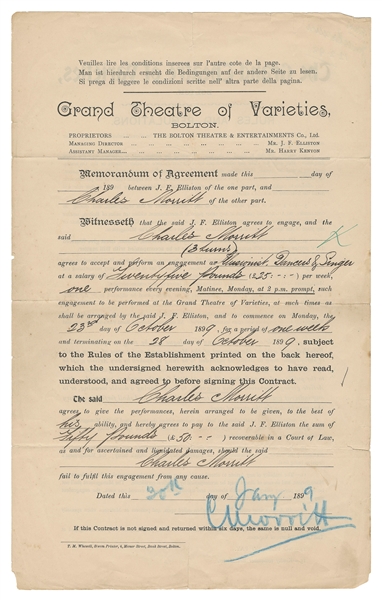 Veuillez lire les conditions inserees sur l'autre cote de la page.
Man ist hierdurch ersucht die Bedingungen auf der andere Seite zu lesen.
Si prega di leggere le condizioni scritte nell' altra parte della pagina.
Grand Theatre of Varieties,
BOLTON.
PROPRIETORS ... ... THE BOLTON THEATRE & ENTERTAINMENTS Co., Ltd.
MANAGING DIRECTOR ... ... MR. J. F. ELLISTON
ASSISTANT MANAGER ... ... MR. HARRY KENYON
Memorandum of Agreement made this day of
189 between J. F. Elliston of the one part, and
Charles Morritt of the other part.
Witnesseth that the said J. F. Elliston agrees to engage, and the
said Charles Morritt
(3 turns)
agrees to accept and perform an engagement as Illusionist, Dancers & Singer
at a salary of Twenty five Pounds (£25 - - -) per week,
one performance every evening, Matinee, Monday, at 2 p.m. prompt, such
engagement to be performed at the Grand Theatre of Varieties, at such times as
shall be arranged by the said J. F. Elliston, and to commence on Monday, the
23rd day of October 1899, for a period of one week
and terminating on the 28 day of October 1899, subject
to the Rules of the Establishment printed on the back hereof,
which the undersigned herewith acknowledges to have read,
understood, and agreed to before signing this Contract.
The said Charles Morritt
agrees to give the performances, herein arranged to be given, to the best of
his ability, and hereby agrees to pay to the said J. F. Elliston the sum of
Fifty Pounds (£50 - -) recoverable in a Court of Law,
as and for ascertained and liquidated damages, should the said
Charles Morritt
fail to fulfil this engagement from any cause.
Dated this 20th day of Jany 1899
C Morritt
If this Contract is not signed and returned within six days, the same is null and void.
Bolton.